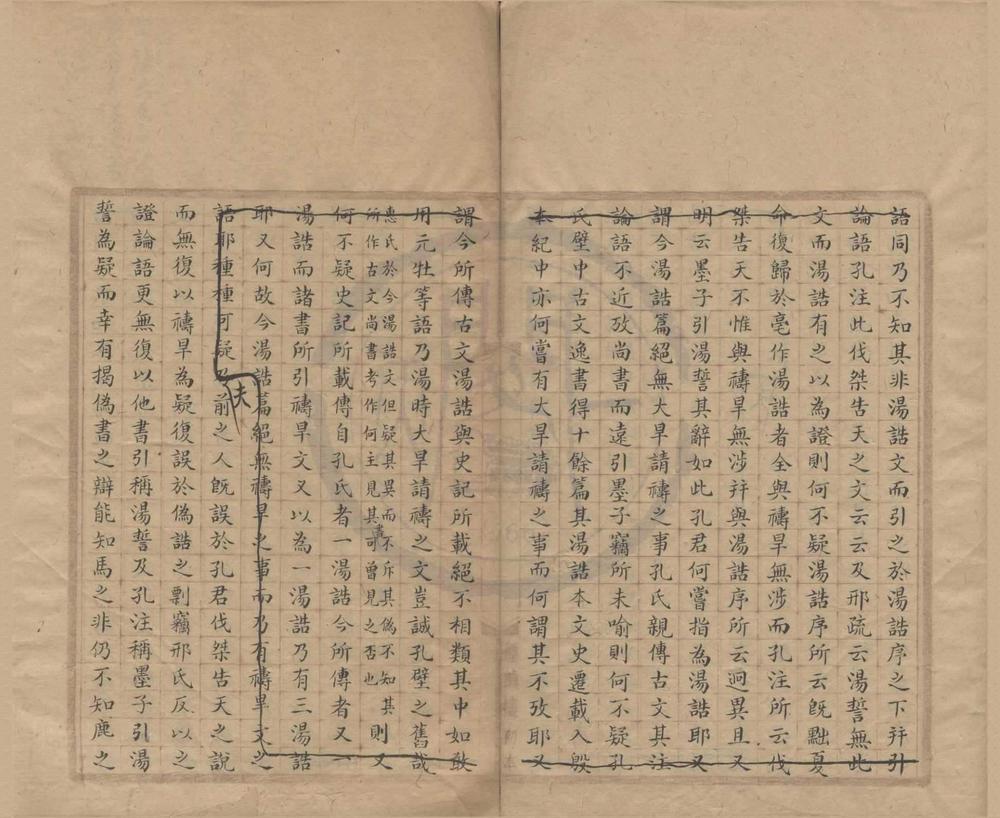 語同乃不知其非湯誥文而引之於湯誥序之下幷引
論語孔注此伐桀告天之文云云及邢疏云湯誓無此
文而湯誥有之以為證則何不疑湯誥序所云旣黜夏
命復歸於亳作湯誥者全與禱旱無涉而孔注所云伐
桀告天不惟與禱旱無涉幷與湯誥序所云迥異且又
明云墨子引湯誓其辭如此孔君何嘗指為湯誥耶又
謂今湯誥篇絕無大旱請禱之事孔氏親傳古文其注
論語不近攷尚書而遠引墨子竊所未喻則何不疑孔
氏壁中古文逸書得十餘篇其湯誥本文史遷載入殷
本紀中亦何嘗有大旱請禱之事而何謂其不攷耶又
謂今所傳古文湯誥與史記所載絕不相類其中如敢
用元牡等語乃湯時大旱請禱之文豈誠孔壁之舊哉
惠氏於今湯誥文但疑其異而不斥其偽不知其
所作古文尚書考作何主見其書可曾見之否也
則又
何不疑史記所載傳自孔氏者一湯誥今所傳者又一
湯誥而諸書所引禱旱文又以為一湯誥乃有三湯誥
耶又何故今湯誥篇絕無禱旱之事而乃有禱旱文之
語耶種種可疑
夫
前之人旣誤於孔君伐桀告天之說
而無復以禱旱為疑復誤於偽誥之剽竊邢氏反以之
證論語更無復以他書引稱湯誓及孔注稱墨子引湯
誓為疑而幸有揭偽書之辯能知馬之非仍不知鹿之